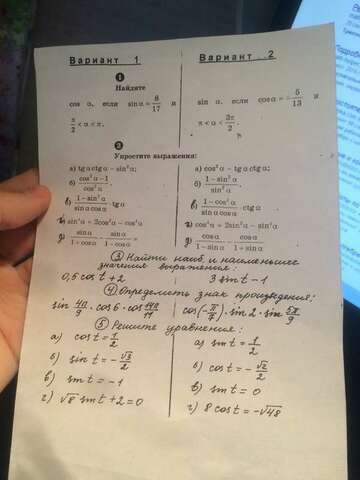 Вариант 1
Вариант 2
1
Найдите
cos α, если sin α = 8/17 и
π/2 < α < π.
sin α, если cos α = -5/13 и
π < α < 3π/2.
2
Упростите выражения:
а) tg α ctg α − sin² α;
б) (cos² α − 1)/cos² α
в) (1 − sin² α)/(sin α cos α) · tg α
г) sin² α + 2cos² α − cos² α
д) sin α/(1 + cos α) − sin α/(1 − cos α)
а) cos² α − tg α ctg α;
б) (1 − sin² α)/sin² α
в) (1 − cos² α)/(sin α cos α) · ctg α
г) cos² α + 2sin² α − sin² α
д) cos α/(1 − sin α) − cos α/(1 + sin α)
③ Найти наиб. и наименьшее
значения выражения:
0,5 cos t + 2
3 sin t − 1
④ Определить знак произведения:
sin 4π/9 · cos 6 ·
cos(−π/7) · sin 2 · sin 5π/9
⑤ Решите уравнения:
а) cos t = 1/2
б) sin t = −√3/2
в) sin t = −1
г) √8 sin t + 2 = 0
а) sin t = 1/2
б) cos t = −√2/2
в) sin t = 0
г) 8 cos t = −√48